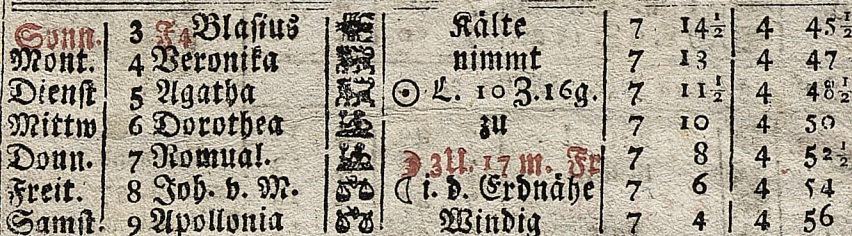 Sonn. 3 F4 Blaſius Kälte 7 14½ 4 45½
Mont. 4 Veronika nimmt 7 13 4 47
Dienſt 5 Agatha ☉ L. 10 Z. 16g. 7 11½ 4 48½
Mittw 6 Dorothea zu 7 10 4 50
Donn. 7 Romual. ☽ 3U. 17 m. Fr 7 8 4 52½
Freit. 8 Joh. v. M. ☾ i. d. Erdnähe 7 6 4 54
Samſt. 9 Apollonia Windig 7 4 4 56